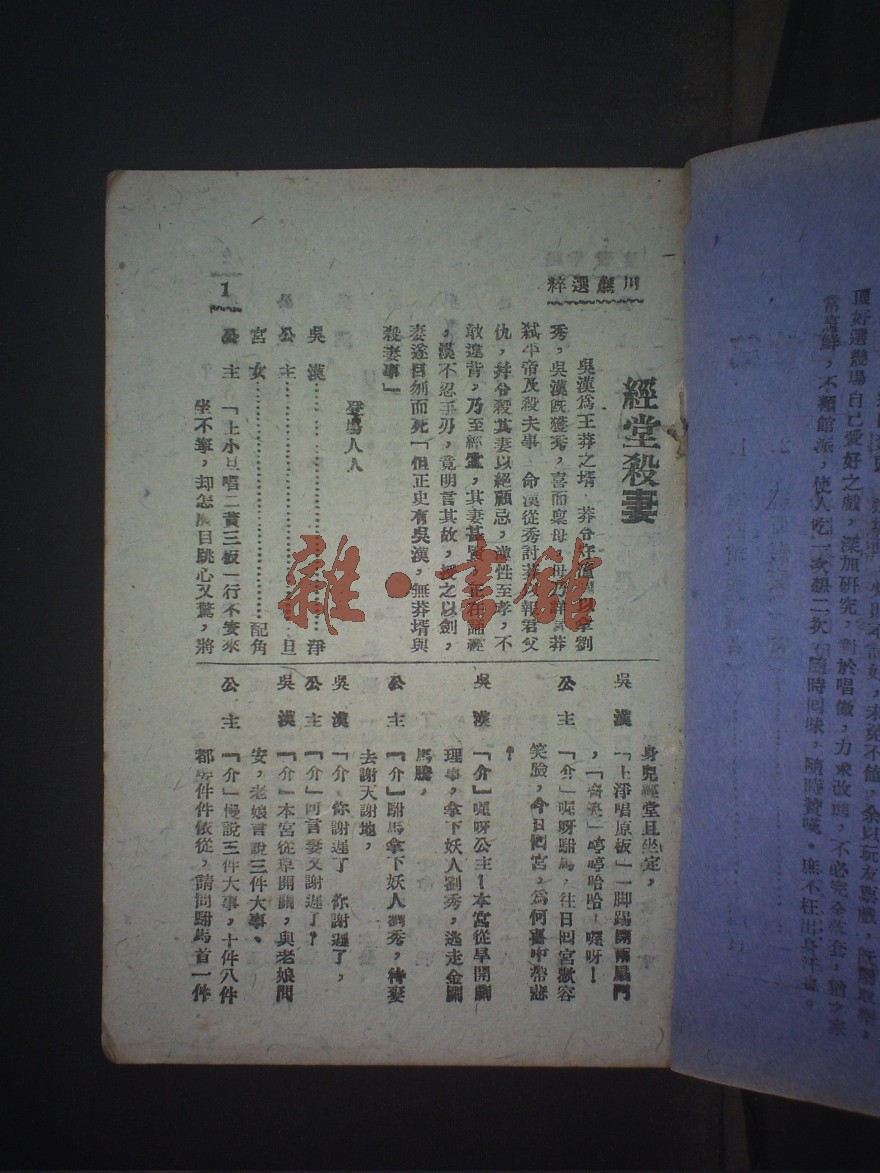 川戲選粹
經堂殺妻
吳漢爲王莽之壻,莽令守潼關以拿劉
秀,吳漢既獲秀,喜而稟母,母乃詳言莽
弑平帝及殺夫事,命漢從秀討莽以報君父
仇,幷令殺其妻以絕顧忌,漢性至孝,不
敢違背,乃至經堂,其妻甚賢,正在誦經
,漢不忍手刃,竟明言其故,授之以劍,
妻遂自刎而死「但正史有吳漢,無莽壻與
殺妻事」
登場人
吳 漢………………淨
公 主………………旦
宮 女………………配角
公 主 「上小旦唱二黃三板」行不安來
坐不寧,却怎麽目跳心又驚,將
1
身兒經堂且坐定,
吳 漢 「上淨唱原板」一脚踢開兩扇門
,「齊奧」嘻嘻哈哈!嗳呀!
公 主 「介」嗳呀駙馬,往日囘宮歡容
笑臉,今日囘宮,爲何喜中帶悲
?
吳 漢 「介」嗳呀公主!本宮從早開關
理事,拿下妖人劉秀,逃走金闕
馬騰,
公 主 「介」駙馬拿下妖人劉秀,待妻
去謝天謝地,
吳 漢 「介」你謝遲了 你謝遲了,
公 主 「介」何言妻又謝遲了?
吳 漢 「介」本宮從早開關,與老娘問
安,老娘言說三件大事、
公 主 「介」慢說三件大事,十件八件
都要件件依從,請問駙馬首一件
頂好選幾場自己愛好之戲,深加研究,對於唱做,力求改進,不必完全落套,猶之家
常烹鮮,不類館派,使人吃一次想二次,隨時囘味,隨時贊嘆。庶不枉出身汗也。
雜·書館